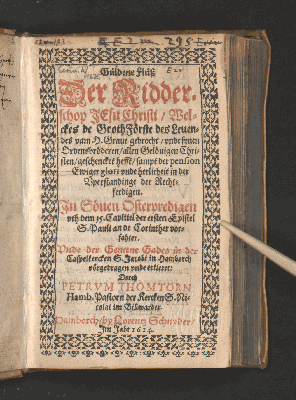 Güldene Fließ
Der Ridder-
schop JEsu Christi / Wel-
ckes de GrothFörste des Leuen-
des van H. Graue gebrocht / vnde synen
Ordensbröderen / allen Gelöuigen Chri-
sten / geschencket hefft / sampt der pension
Ewiger glori vnde herlicheit in der
Vperstandinge der Recht-
ferdigen.
In Söuen Osterpredigen
vth dem 15. Capittel der ersten Epistel
S. Pauli an de Corinther vor-
fahtet.
Vnde der Gemene Gades in der
Caspelkercken S. Jacobi in Hamborch
vörgedragen vnde erkleret:
Dorch
PETRVM THOMTORN
Hamb. Pastorn der Kercken S. Ni-
colai im Bilwarder.
Hamborch / by Lorentz Schneider /
Im Jahr 1614.